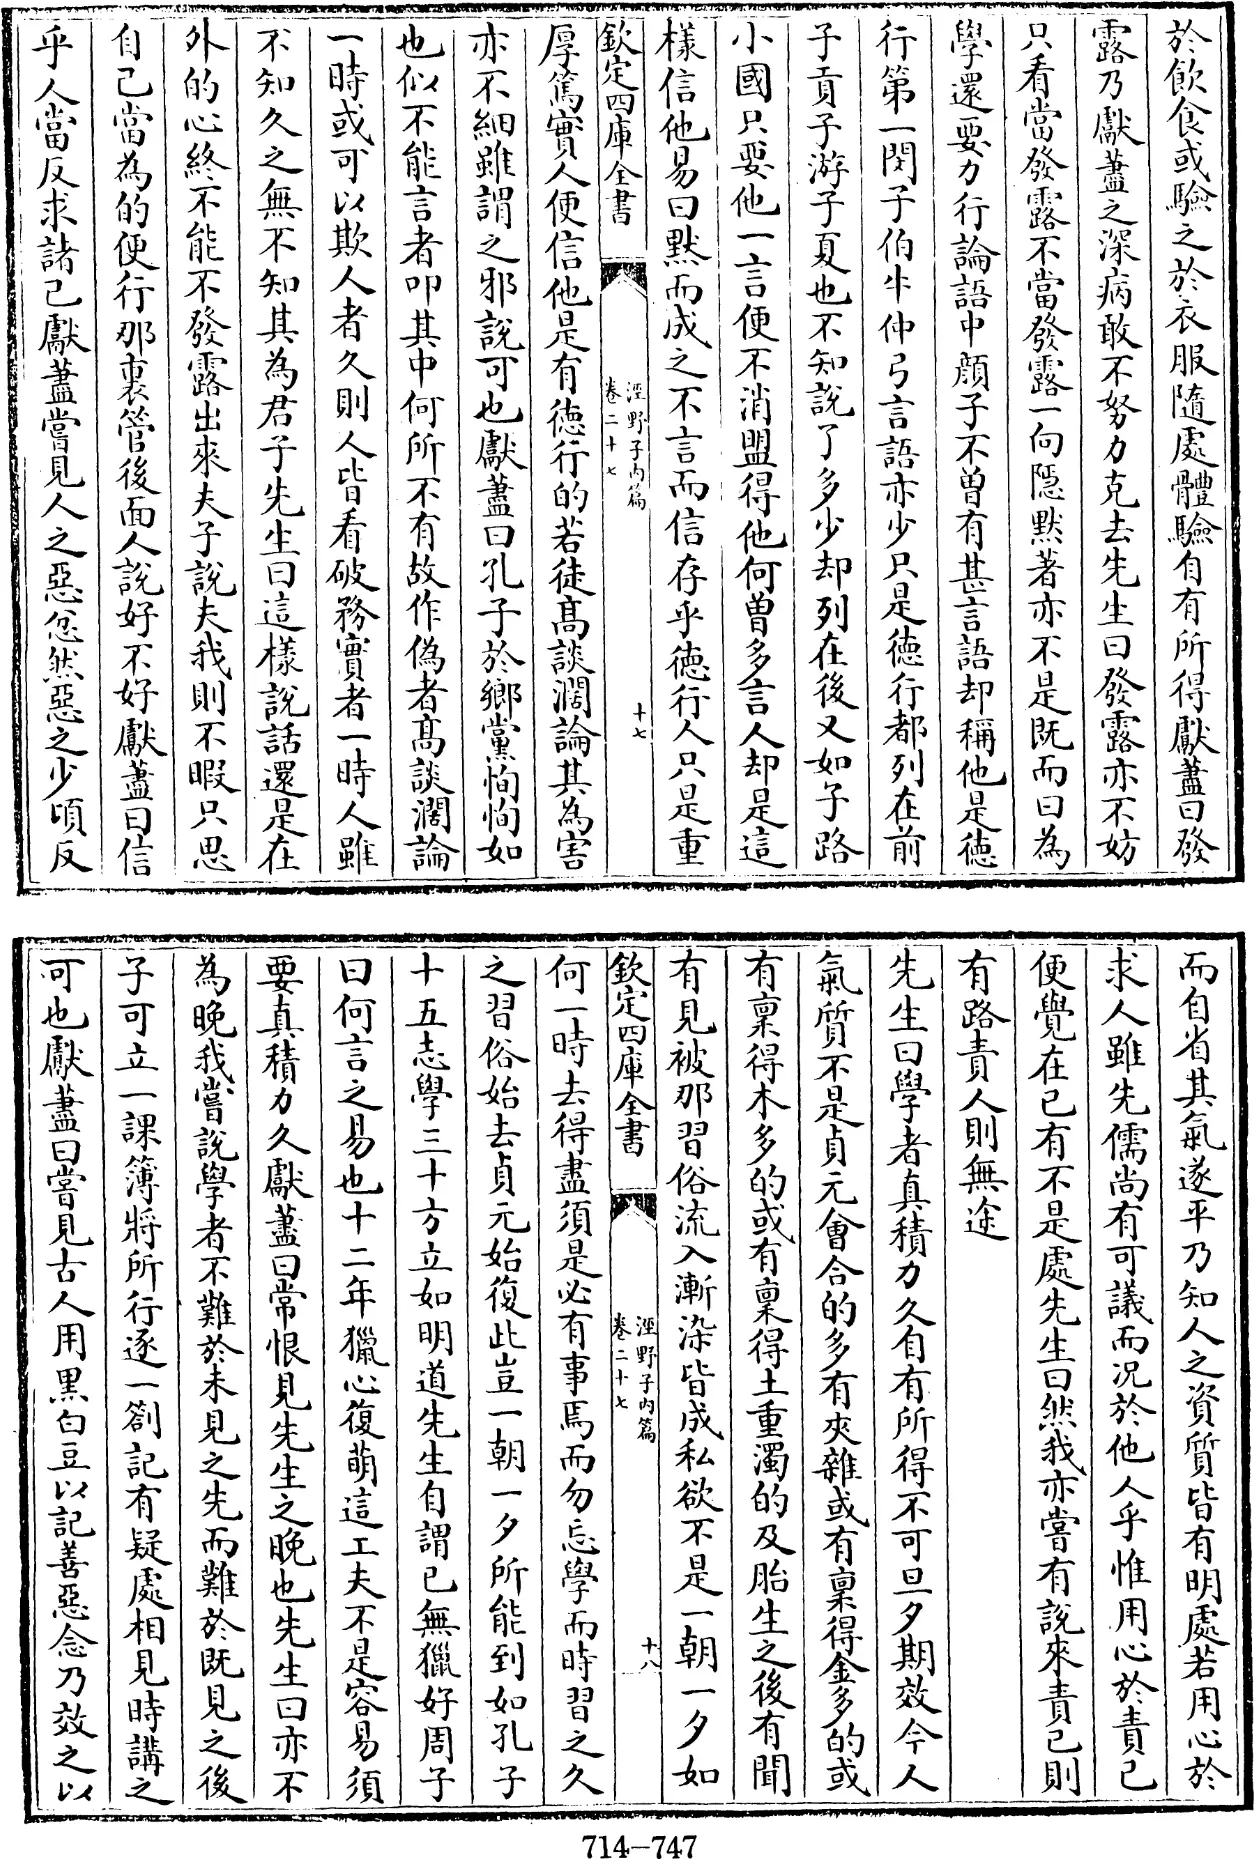 於飲食或驗之於衣服隨處體驗自有所得獻藎曰發
露乃獻藎之深病敢不努力克去先生曰發露亦不妨
只看當發露不當發露一向隱默著亦不是既而曰為
學還要力行論語中顔子不曽有甚言語却稱他是徳
行第一閔子伯牛仲弓言語亦少只是徳行都列在前
子貢子游子夏也不知說了多少却列在後又如子路
小國只要他一言便不消盟得他何曽多言人却是這
樣信他易曰默而成之不言而信存乎徳行人只是重
欽定四庫全書
涇野子内篇
卷二十七
十七
厚篤實人便信他是有徳行的若徒髙談濶論其為害
亦不細雖謂之邪說可也獻藎曰孔子於鄉黨恂恂如
也似不能言者叩其中何所不有故作偽者髙談濶論
一時或可以欺人者久則人皆看破務實者一時人雖
不知久之無不知其為君子先生曰這樣說話還是在
外的心終不能不發露出來夫子說夫我則不暇只思
自己當為的便行那裏管後面人說好不好獻藎曰信
乎人當反求諸己獻藎嘗見人之惡忽然惡之少頃反
而自省其氣遂平乃知人之資質皆有明處若用心於
求人雖先儒尚有可議而况於他人乎惟用心於責己
便覺在己有不是處先生曰然我亦嘗有說來責己則
有路責人則無途
先生曰學者真積力久自有所得不可旦夕期效今人
氣質不是貞元會合的多有夾雜或有稟得金多的或
有稟得木多的或有稟得土重濁的及胎生之後有聞
有見被那習俗流入漸染皆成私欲不是一朝一夕如
欽定四庫全書
涇野子内篇
卷二十七
十八
何一時去得盡須是必有事焉而勿忘學而時習之久
之習俗始去貞元始復此豈一朝一夕所能到如孔子
十五志學三十方立如明道先生自謂已無獵好周子
曰何言之易也十二年獵心復萌這工夫不是容易須
要真積力久獻藎曰常恨見先生之晚也先生曰亦不
為晚我嘗說學者不難於未見之先而難於既見之後
子可立一課簿將所行逐一劄記有疑處相見時講之
可也獻藎曰嘗見古人用黒白豆以記善惡念乃效之以
714—747